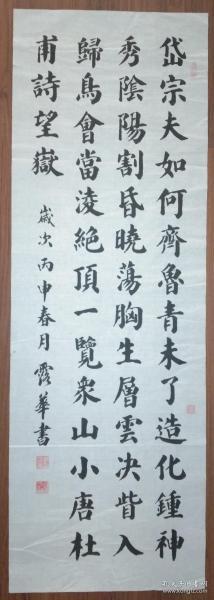 岱宗夫如何齊魯青未了造化鍾神
秀陰陽割昏曉蕩胸生層雲決眥入
歸鳥會當淩絕頂一覽衆山小唐杜
甫詩望嶽
歲次丙申春月露華書